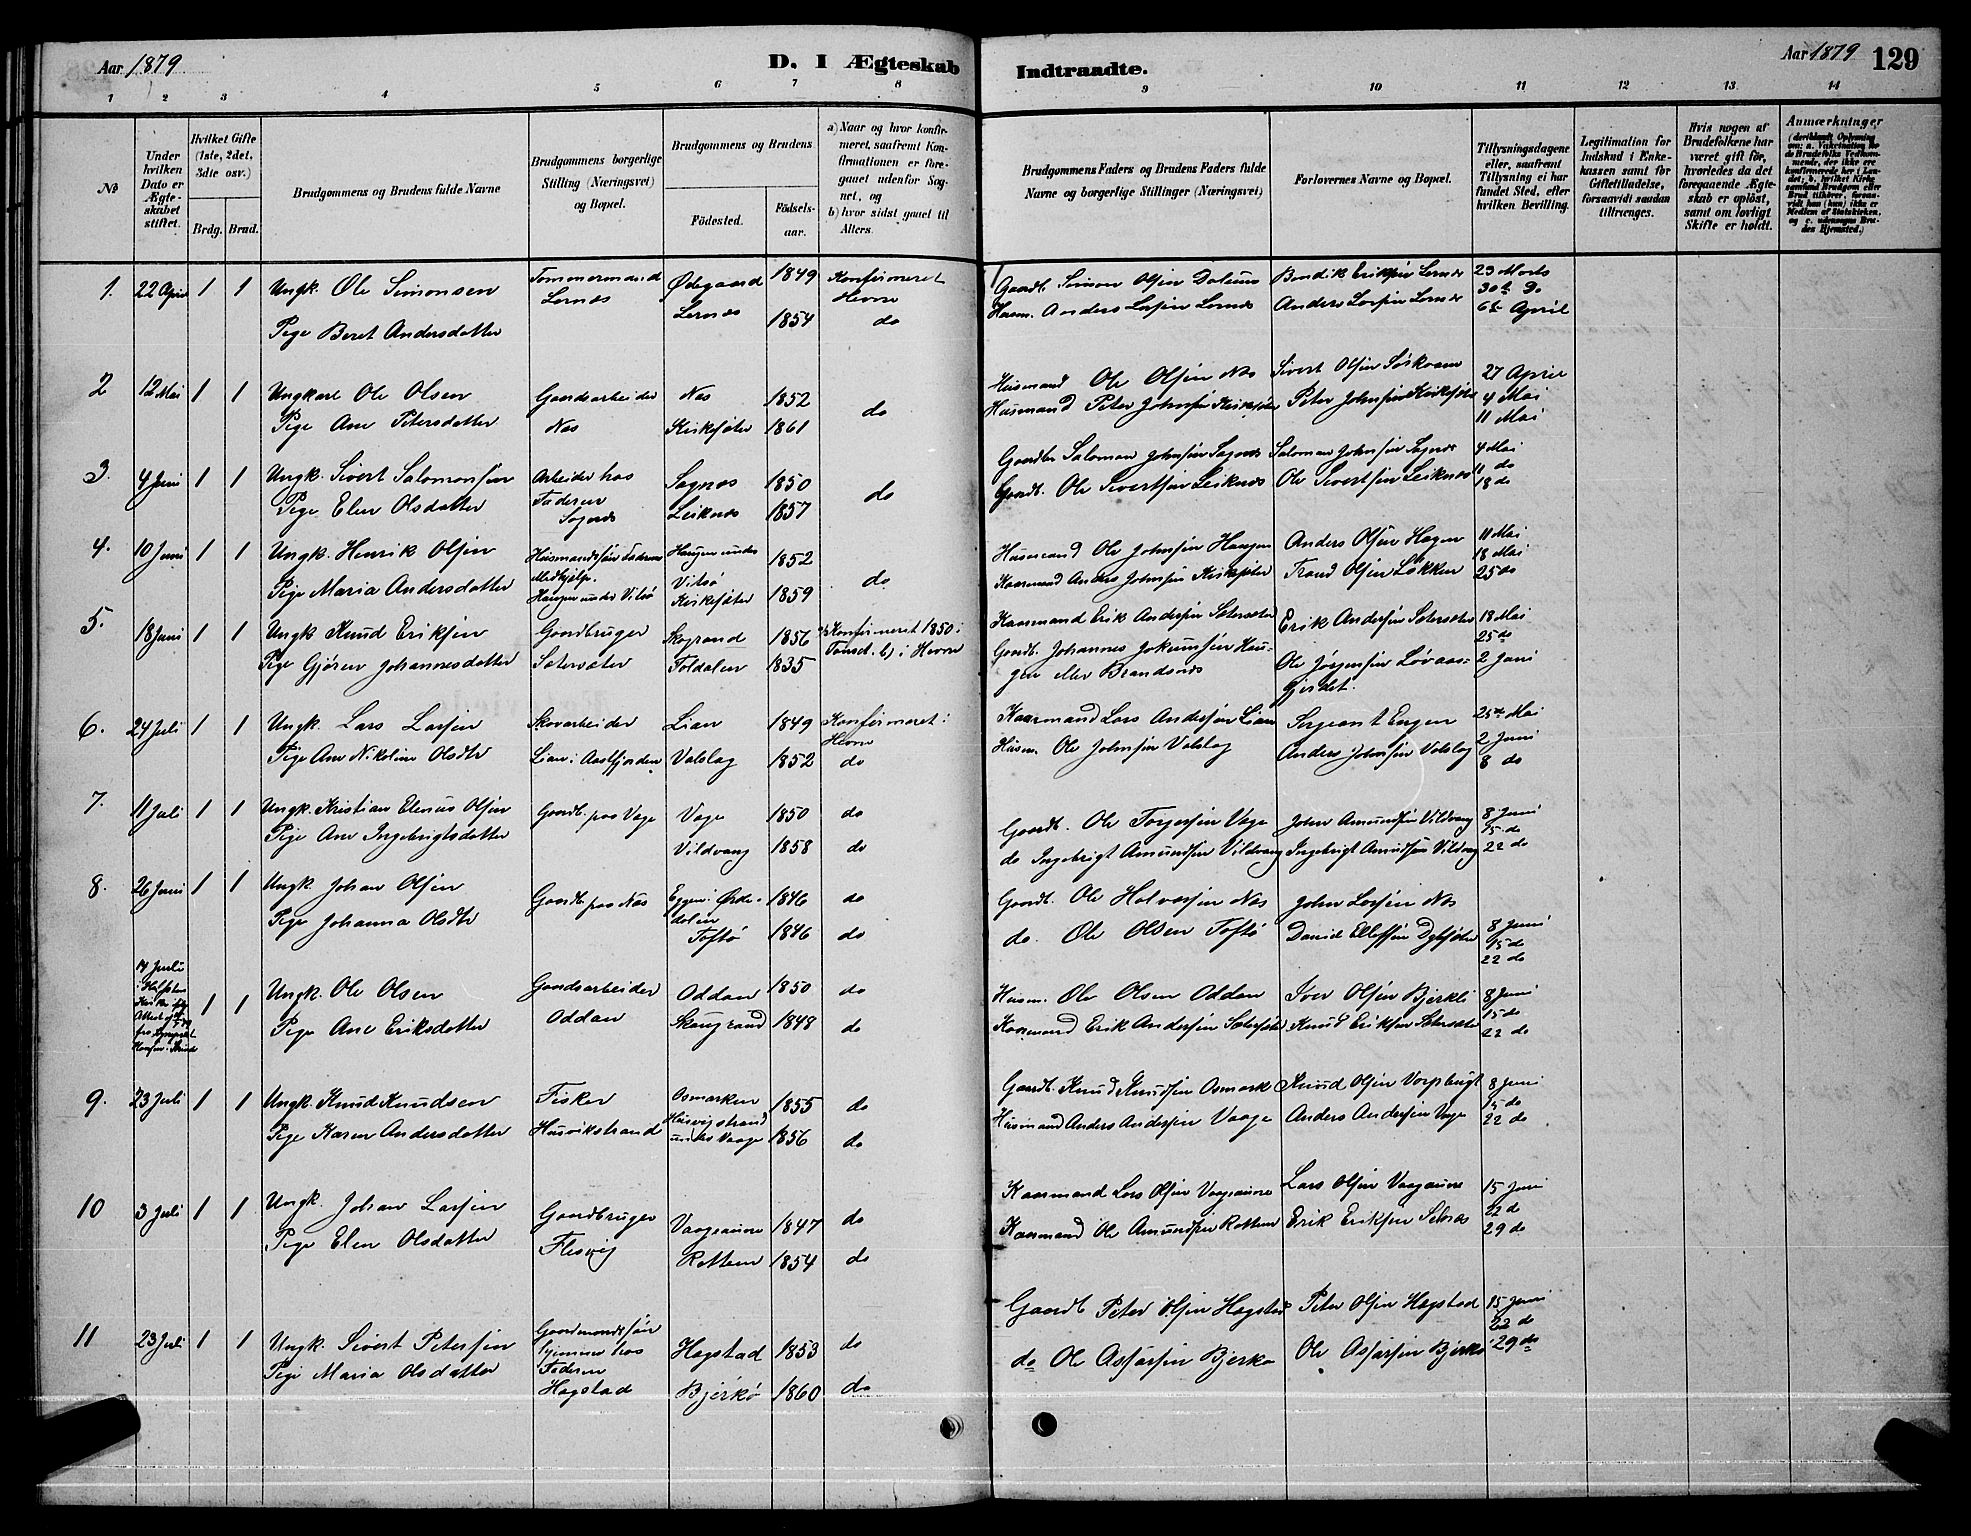 Aar 1879
D. I Ægteskab
Indtraadte.
Aar 1879
129
1 2 3 4 5 6 7 8 9 10 11 12 13 14
No
Under hvilken Dato er Ægteskabet stiftet.
Hvilket Gifte (1ste, 2det, 3die osv.)
Brdg. Brud.
Brudgommens og Brudens fulde Navne
Brudgommens borgerlige Stilling (Næringsvei) og Bopæl.
Brudgommens og Brudens
Födested.
Födselsaar.
a) Naar og hvor konfirmeret, saafremt Konfirmationen er foregaaet udenfor Sognet, og
b) hvor sidst gaaet til Alters.
Brudgommens Faders og Brudens Faders fulde Navne og borgerlige Stillinger (Næringsvei)
Forlovernes Navne og Bopæl.
Tillysningsdagene eller, saafremt Tillysning ei har fundet Sted, efter hvilken Bevilling.
Legitimation for Indskud i Enkekassen samt for Giftetilladelse, forsaavidt saadan tiltrænges.
Hvis nogen af Brudefolkene har været gift för, hvorledes da det foregaaende Ægteskab er oplöst, samt om lovligt Skifte er holdt.
Anmærkninger
1. 22 April 1 1 Ungk. Ole Simonsen Tommermand Ødegaard 1849 Konfirmeret Gaardb. Simon Olsen Dalum Bendik Eriksen Lernes 23 Marts
Lernes Lernes Hevne Husm. Anders Larsen Lernes Anders Larsen Lernes 30te Do
Pige Beret Andersdatter 1854 do 6te April
2 12 Mai 1 1 Ungkarl Ole Olsen Gaardsarbeider Nes 1852 do Husmand Ole Olsen Nes Sivert Olsen 27 April
Pige Ane Petersdatter Nes Kirksæter 1861 Husmand Peter Johnsen Kirksæter Peter Johnsen Kirksæter 4 Mai
11 Mai
3. 4 Juni 1 1 Ungk. Sivert Salomonsen Arbeider hos Sagnes 1850 do Gaardbr Salomon Johnsen Sagnes Salomon Johnsen Sagnes 4 Mai
Pige Elen Olsdatter Faderen Leiknes 1857 Gaardb. Ole Sivertsen Leiknes Ole Sivertsen Leiknes 11 do
Sagnes 18 do
4. 10 Juni 1 1 Ungk. Henrik Olsen Husmandssøn Faderens Haugen under 1852 do Husmand Ole Johnsen Haugen Anders Olsen Hagen 11 Mai
Medhjælp. Vitsø 18 Mai
Pige Maria Andersdatter Haugen under Vitsø Kirksæter 1859 Kaarmand Anders Johnsen Kirksæter Trond Olsen Løkken 25 do
5. 18 Juni 1 1 Ungk Knud Eriksen Gaardbruger Skogrand 1856 Konfirmeret 1850 i Kaarmand Erik Andersen Sætersæter Erik Andersen Sætersæter 18 Mai
25 do
Pige Gjøren Johannesdatter Sætersæter Foldalen 1835 b) i Hevne Gardb. Johannes Jokumsen Haugen eller Brandsnes Ole Jørgensen Løvaasgjerdet. 2 Juni
6. 24 Juli 1 1 Ungk. Lars Larsen Skovarbeider Lian 1849 Konfirmeret i Hevne Kaarmand Lars Andersen Lian Sergeant Engen 25de Mai
2 Juni
Pige Ane Nikoline Olsdtr Lian i Aastfjorden Valslag 1852 do Husm. Ole Johnsen Valslag Anders Johnsen Valslag 8 do
7. 11 Juli 1 1 Ungk. Kristian Elenus Olsen Gaardb. paa Vage Vage 1850 do Gaardb. Ole Torgersen Vage John Amundsen Vildvang 8 Juni
15 do
Pige Ane Ingebrigtsdatter Vildvang 1858 do do Ingebrigt Amundsen Vildvang Ingebrigt Amundsen Vildvang 22 do
8. 26 Juni 1 1 Ungk. Johan Olsen Gaardb. paa Nes Eggen i Ørkedalen 1846 do Gaardb. Ole Halvorsen Nes John Larsen Nes
Pige Johanna Olsdtr Toftø 1846 do do. Ole Olsen Toftø David Ellefsen 8 Juni
15 do
22 do
14 Juli 1 1 Ungk. Ole Olsen Gaardsarbeider Oddan 1850 do Husm. Ole Olsen Oddan Iver Olsen Bjerkli 8 Juni
15 do
Pige Ane Eriksdatter Oddan Skaugrand 1848 do Kaarmand Erik Andersen Sætersæter Knud Eriksen Sætersæter 22 do
9. 23 Juli 1 1 Ungk. Knud Knudsen Fisker Osmarken 1855 do Gaardb. Knud Knudsen Osmark Knud Olsen 8 Juni
15 do
Pige Karen Andersdatter Husvikstrand Husvigstrand under Vaage 1856 do Husmand Anders Andersen Vaage Anders Andersen Vage 22 do
10 3 Juli 1 1 Ungk. Johan Larsen Gaardbruger Vaagaune 1847 do Kaarmand Lars Olsen Vaagaune Lars Olsen Vaagaune 15 Juni
22 d
Pige Elen Olsdatter Flesvig Rottem 1854 do Kaarmand Ole Amundsen Rottem Erik Eriksen 29 do
11 23 Juli 1 1 Ungk. Sivert Petersen Gaardmandssøn hjemme hos Hagstad 1853 do Gaardb Peter Olsen Hagstad Peter Olsen Hagstad 15 Juni
22 d
Pige Maria Olsdatter Faderen Hagstad Bjerkø 1860 do do Ole Assersen Bjerkø Ole Assersen Bjerkø 29 do